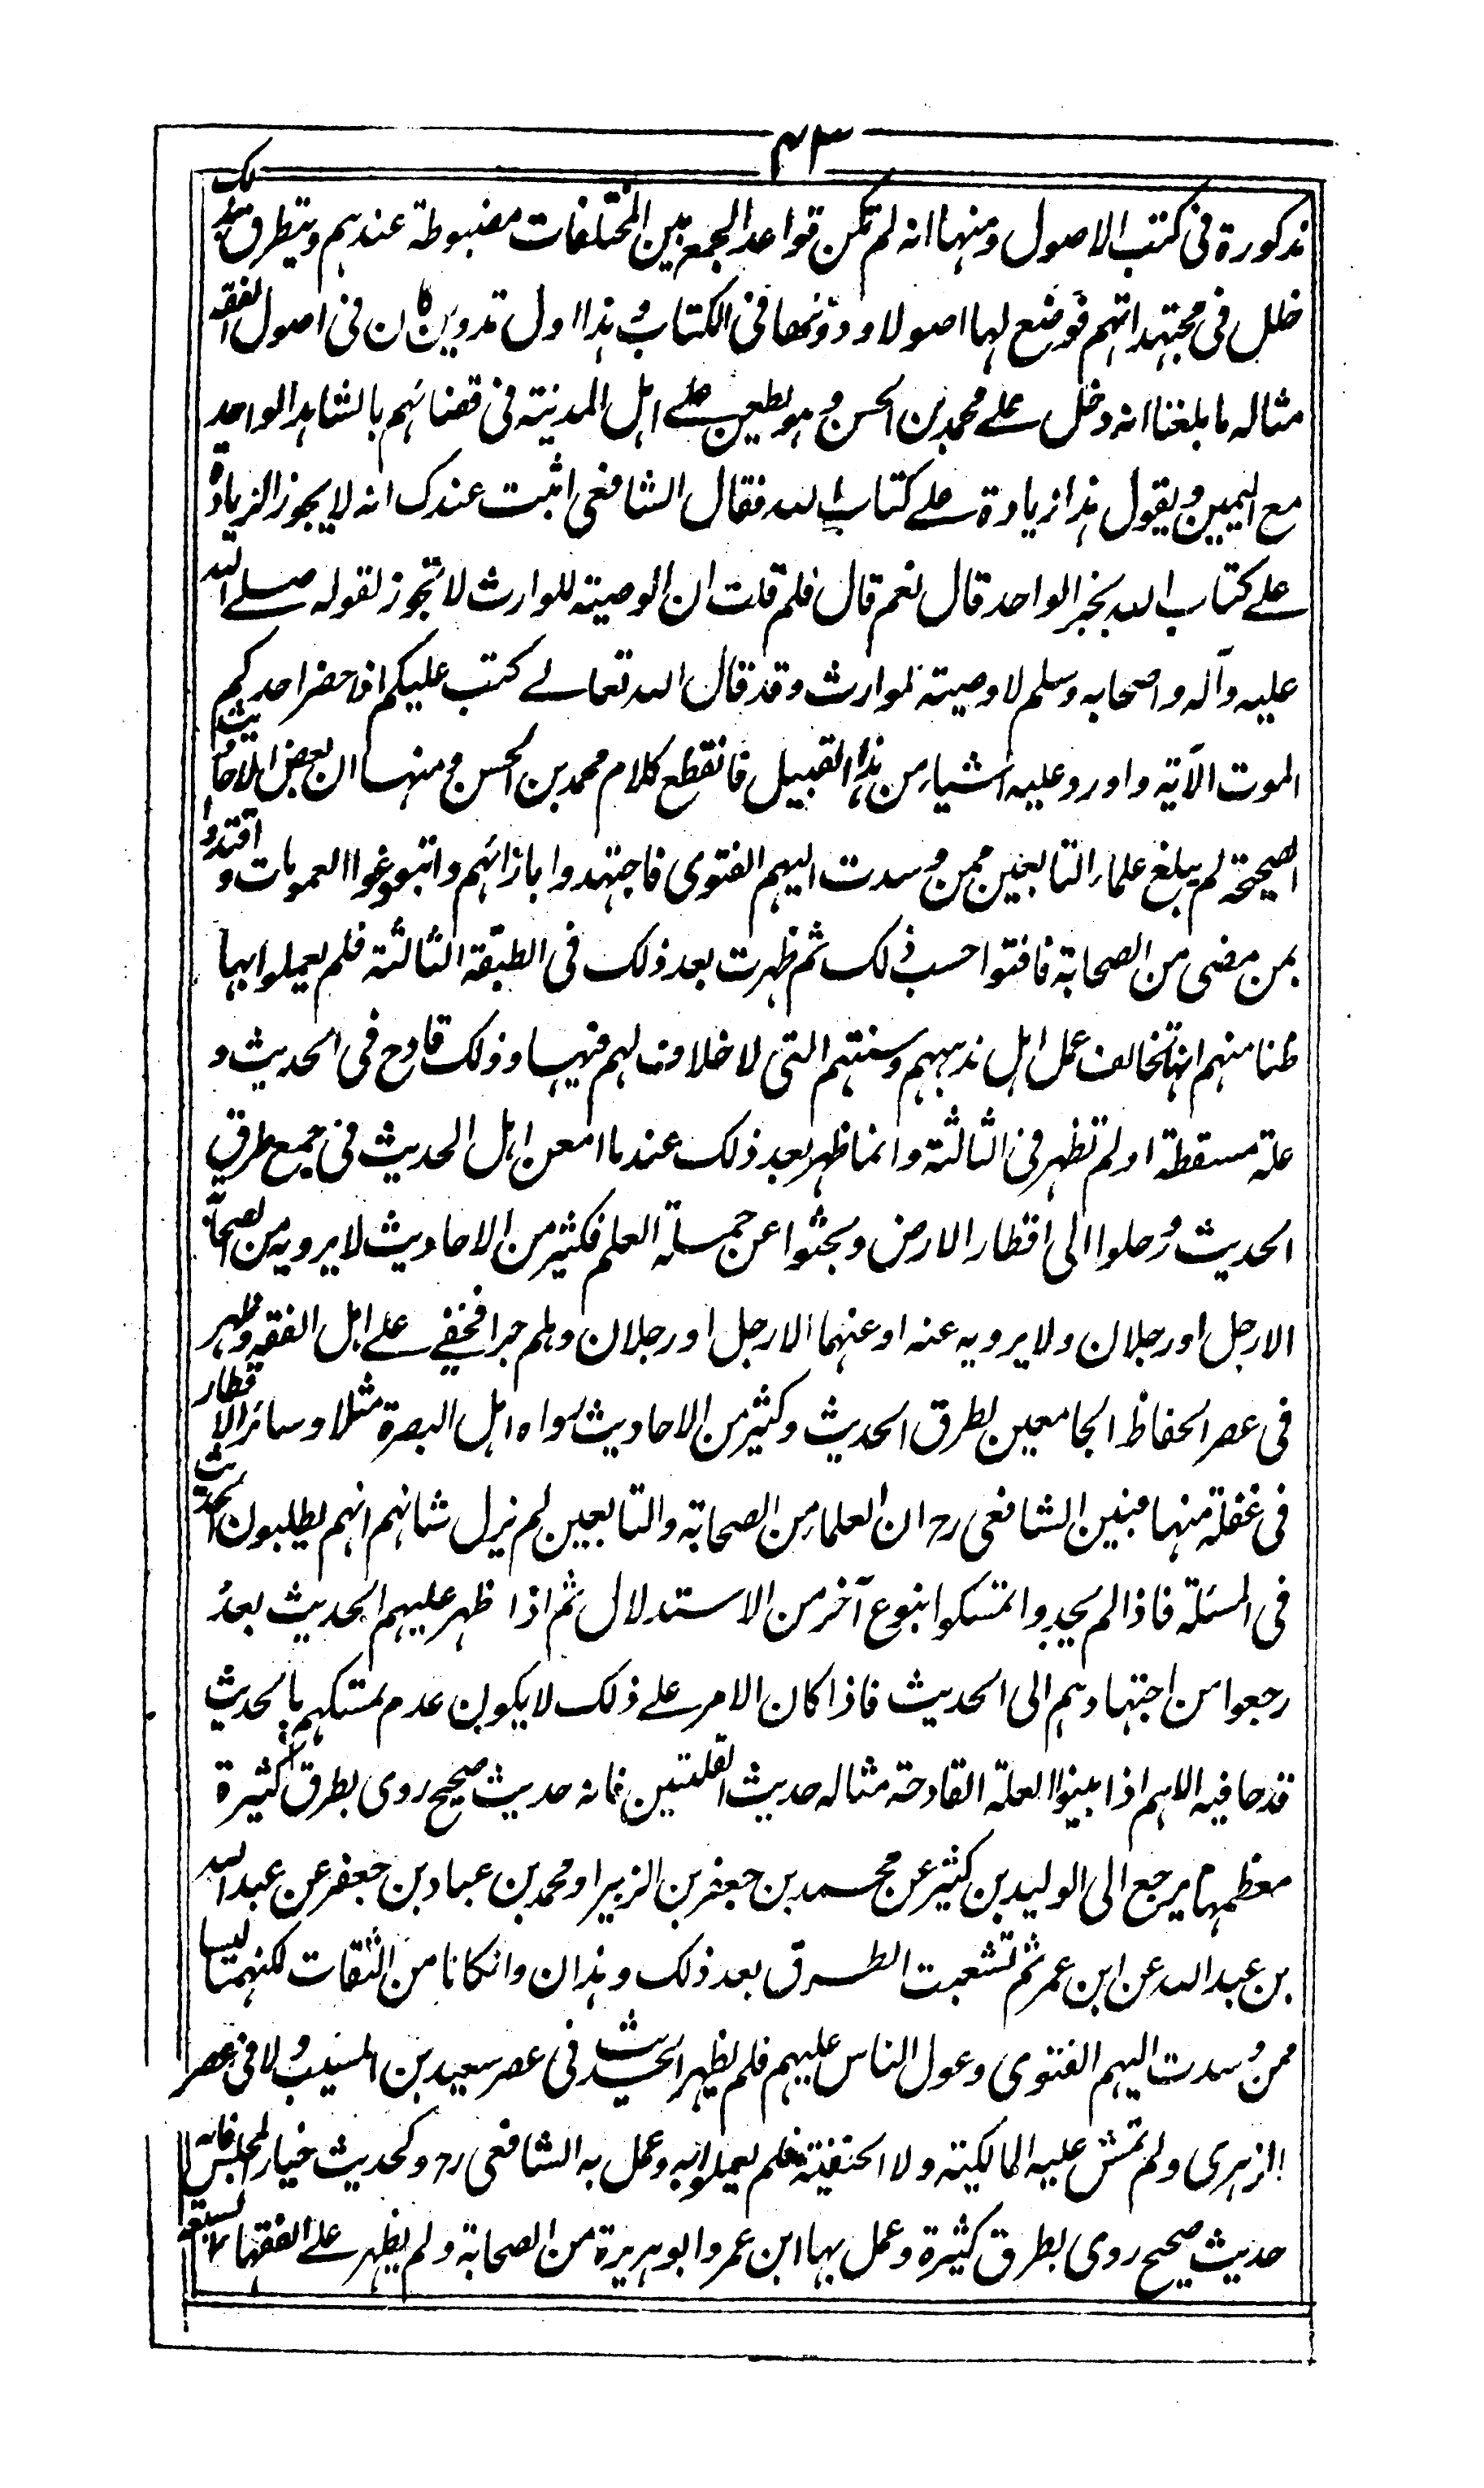 ٤٣
مذكورة فى كتب الاصول ومنها انه لم تكن قواعد الجمع بين المختلفات مضبوطة عندهم ويتطرق بذلك
خلل فى مجتهداتهم فوضع لها اصولا ودونها فى الكتاب وهذا اول تدوين كان فى اصول الفقه
مثاله ما بلغنا انه دخل على محمد بن الحسن وهو يطعن على اهل المدينة فى قضائهم بالشاهد الواحد
مع اليمين ويقول هذا زيادة على كتاب الله فقال الشافعى اثبت عندك انه لا يجوز الزيادة
على كتاب الله بخبر الواحد قال نعم قال فلم قلت ان الوصية للوارث لا تجوز لقوله صلى الله
عليه وآله واصحابه وسلم لا وصية لوارث وقد قال الله تعالى كتب عليكم اذا حضر احدكم
الموت الآية واورد عليه اشياء من هذا القبيل فانقطع كلام محمد بن الحسن ومنها ان بعض الاحاديث
الصحيحة لم يبلغ علماء التابعين ممن وسدت اليهم الفتوى فاجتهدوا بارائهم واتبعوا العمومات واقتدوا
بمن مضى من الصحابة فافتوا حسب ذلك ثم ظهرت بعد ذلك فى الطبقة الثالثة فلم يعملوا بها
ظنا منهم انها تخالف عمل اهل مذهبهم وسنتهم التى لا خلاف لهم فيها وذلك قادح فى الحديث و
علة مسقطة او لم تظهر فى الثالثة وانما ظهر بعد ذلك عند ما امعن اهل الحديث فى جمع طرق
الحديث ورحلوا الى اقطار الارض وبحثوا عن حملة العلم فكثير من الاحاديث لا يرويه من الصحابة
الا رجل او رجلان ولا يرويه عنه او عنهما الا رجل او رجلان وهلم جرا فخفى على اهل الفقه وظهر
فى عصر الحفاظ الجامعين لطرق الحديث وكثير من الاحاديث رواه اهل البصرة مثلا وسائر الاقطار
فى غفلة منها فبين الشافعى رح ان العلماء من الصحابة والتابعين لم يزل شانهم انهم يطلبون الحديث
فى المسئلة فاذا لم يجدوا تمسكوا بنوع آخر من الاستدلال ثم اذا ظهر عليهم الحديث بعد
رجعوا من اجتهادهم الى الحديث فاذا كان الامر على ذلك لا يكون عدم تمسكهم بالحديث
قدحا فيه اللهم اذا بينوا العلة القادحة مثاله حديث القلتين فانه حديث صحيح روى بطرق كثيرة
معظمها يرجع الى الوليد بن كثير عن محمد بن جعفر بن الزبير او محمد بن عباد بن جعفر عن عبد الله
بن عبد الله عن ابن عمر ثم تشعبت الطرق بعد ذلك وهذان وانكانا من الثقات لكنهما ليسا
ممن وسدت اليهم الفتوى وعول الناس عليهم فلم يظهر الحديث فى عصر سعيد بن المسيب ولا فى عصر
الزهرى ولم تمش عليه المالكية ولا الحنفية فلم يعملوا به وعمل به الشافعى رح وكحديث خيار المجلس فانه
حديث صحيح روى بطرق كثيرة وعمل بها ابن عمر وابو هريرة من الصحابة ولم يظهر على الفقهاء السبعة